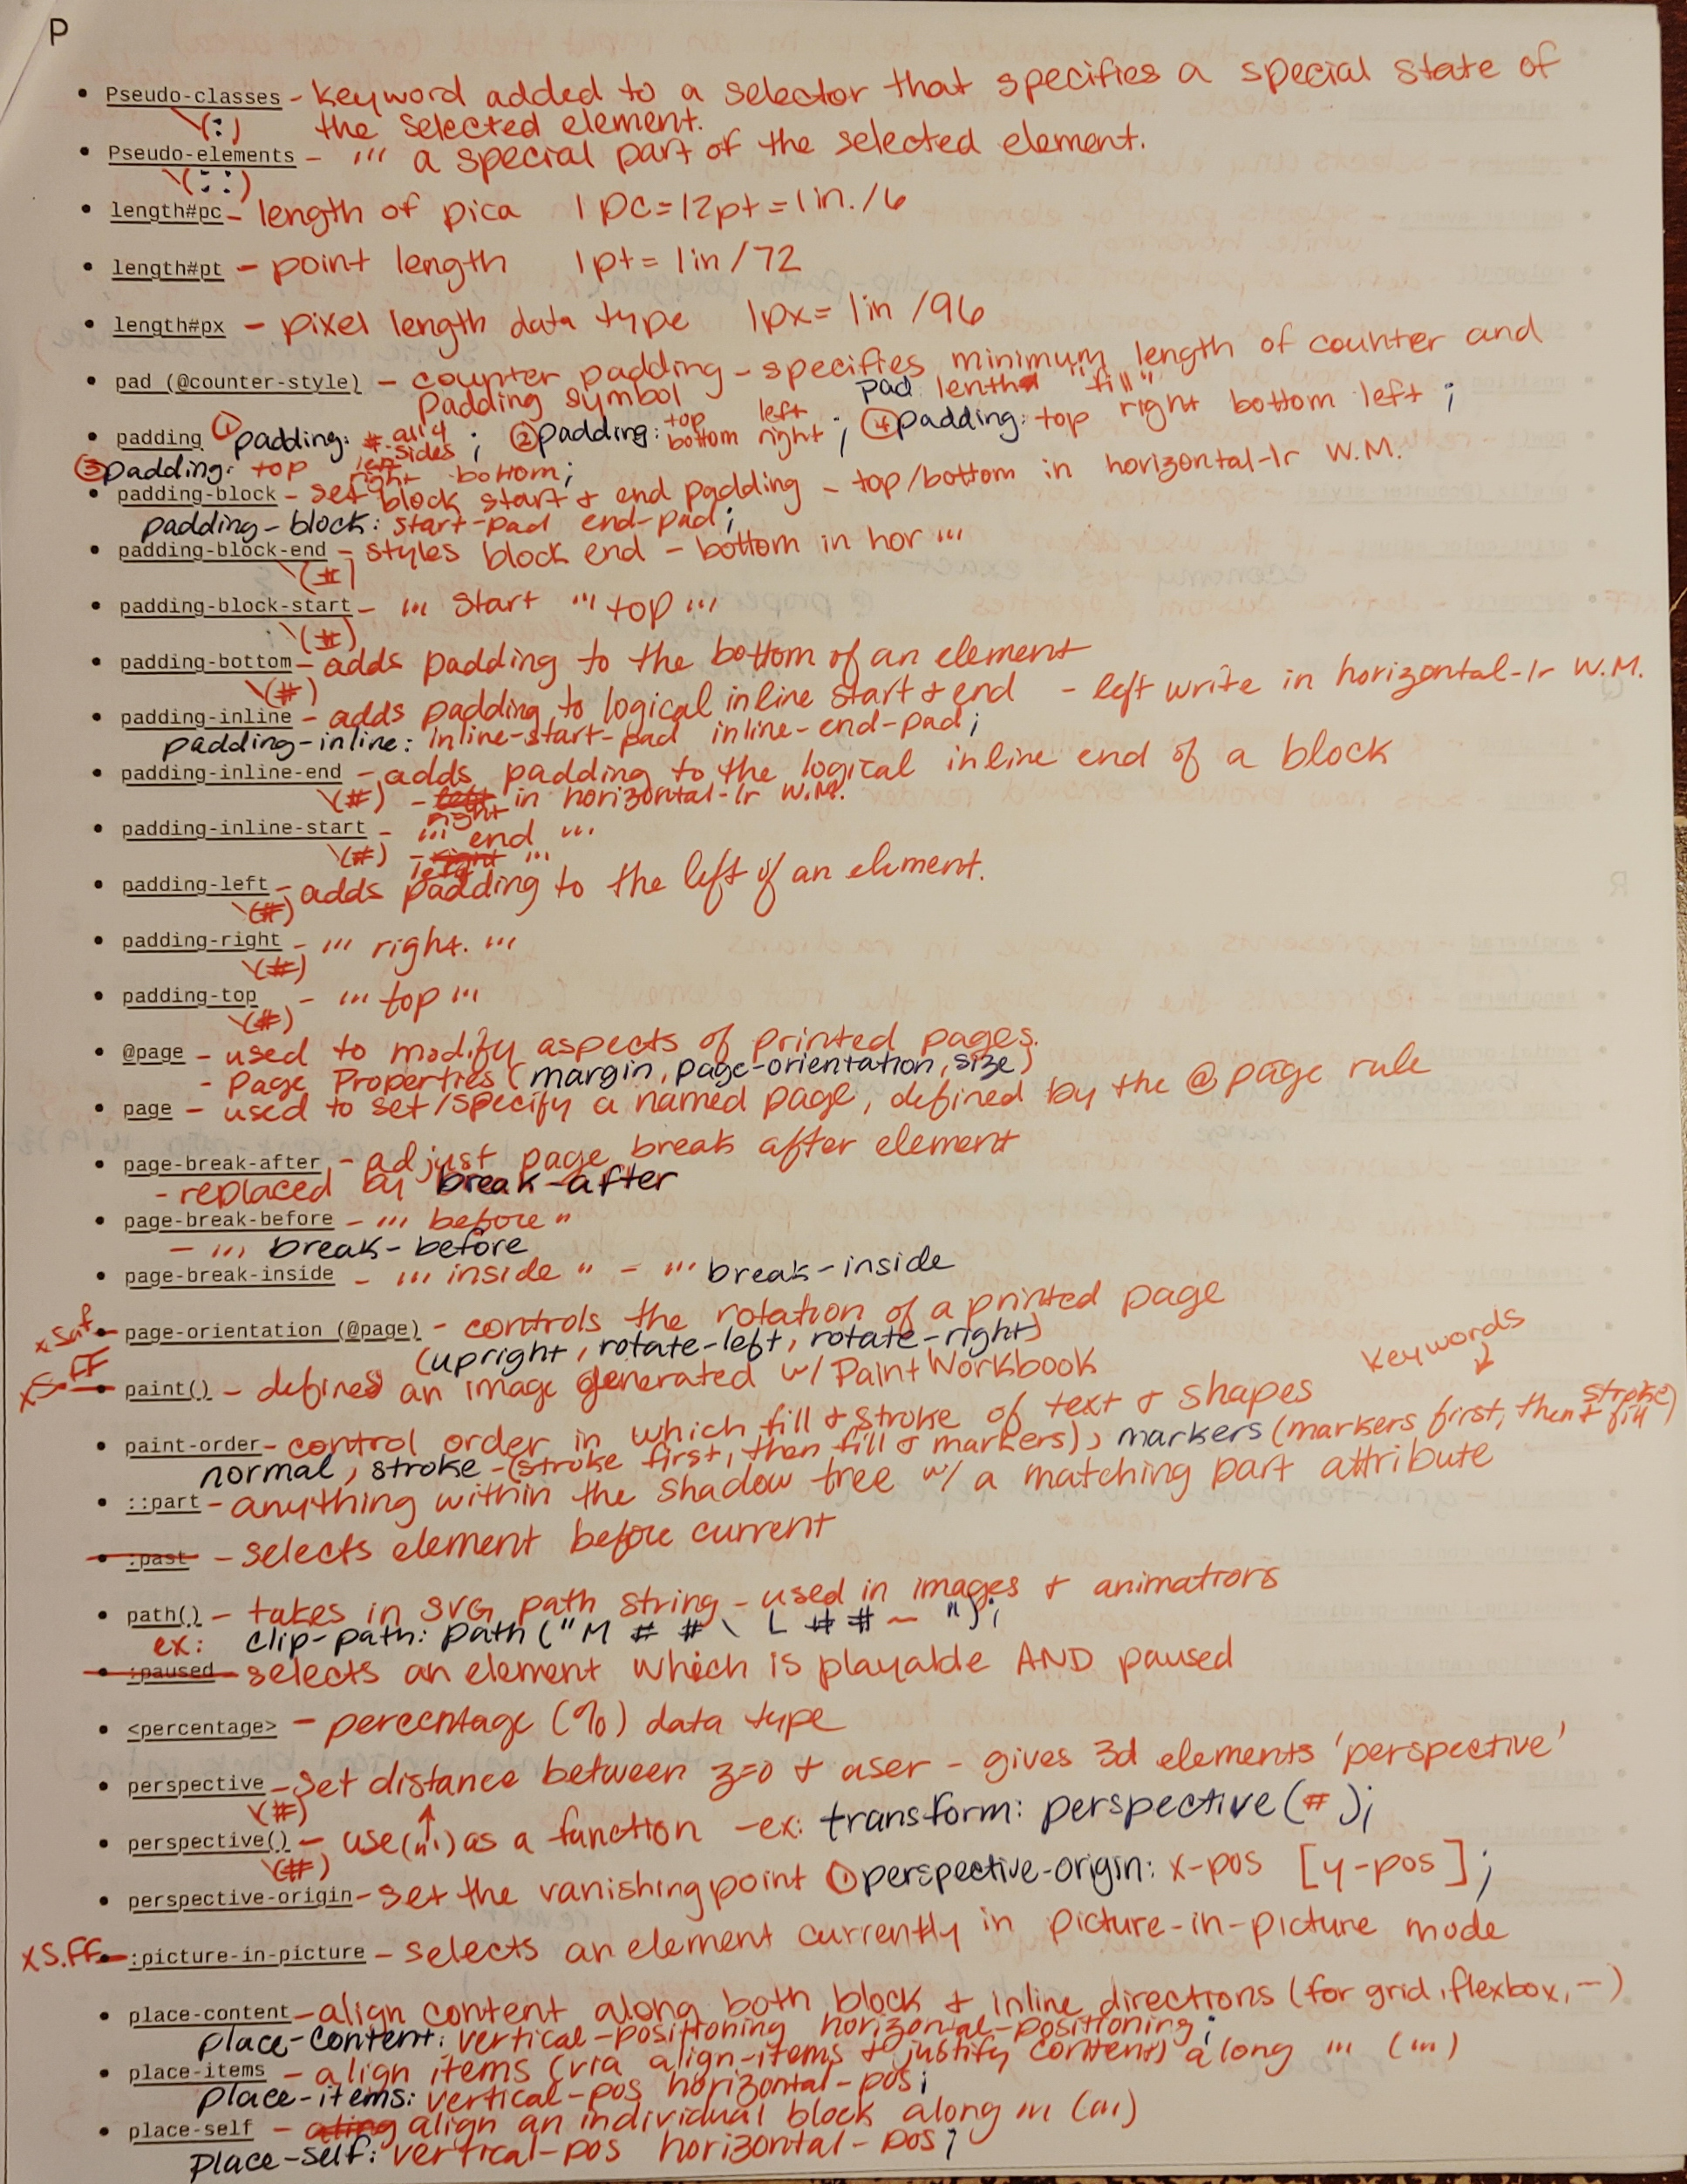 P
• Pseudo-classes - keyword added to a selector that specifies a special state of
(:) the selected element.
• Pseudo-elements - ''' a special part of the selected element.
(::)
• length#pc - length of pica 1pc=12pt=1in./6
• length#pt - point length 1pt= 1in/72
• length#px - pixel length data type 1px= 1in/96
• pad (@counter-style) - counter padding - specifies minimum length of counter and
padding symbol pad: length "fill"
• padding ① padding: # all 4 sides ; ② padding: top bottom left right ; ④ padding: top right bottom left ;
③ padding: top left right bottom;
• padding-block - set block start & end padding - top/bottom in horizontal-lr W.M.
padding-block: start-pad end-pad;
• padding-block-end - styles block end - bottom in hor '''
(#)
• padding-block-start - ''' start ''' top '''
(#)
• padding-bottom - adds padding to the bottom of an element
(#)
• padding-inline - adds padding to logical inline start & end - left write in horizontal-lr W.M.
padding-inline: inline-start-pad inline-end-pad;
• padding-inline-end - adds padding to the logical inline end of a block
(#) - left right in horizontal-lr W.M.
• padding-inline-start - ''' end '''
(#) - right left '''
• padding-left - adds padding to the left of an element.
(#)
• padding-right - ''' right. '''
(#)
• padding-top - ''' top '''
(#)
• @page - used to modify aspects of printed pages.
- Page Properties (margin, page-orientation, size)
• page - used to set/specify a named page, defined by the @page rule
• page-break-after - adjust page break after element
- replaced by break-after
• page-break-before - ''' before "
- ''' break-before
• page-break-inside - ''' inside " - ''' break-inside
xSaf • page-orientation (@page) - controls the rotation of a printed page
(upright, rotate-left, rotate-right)
xS. FF • paint() - defined an image generated w/ Paint Workbook
Keywords
• paint-order - control order in which fill & stroke of text & shapes
normal, stroke - (stroke first, then fill & markers), markers (markers first, then stroke & fill)
• ::part - anything within the shadow tree w/ a matching part attribute
• :past - selects element before current
• path() - takes in SVG path string - used in images & animations
ex: clip-path: path("M # # \ L # # ~ ");
• :paused - selects an element which is playable AND paused
• <percentage> - percentage (%) data type
• perspective - set distance between z=0 & user - gives 3d elements 'perspective'
(#)
• perspective() - use (''') as a function - ex: transform: perspective(#);
(#)
• perspective-origin - set the vanishing point ① perspective-origin: x-pos [y-pos];
xS.FF • :picture-in-picture - selects an element currently in picture-in-picture mode
• place-content - align content along both block & inline directions (for grid, flexbox, ~)
place-content: vertical-positioning horizontal-positioning;
• place-items - align items (via align-items & justify content) along ''' (''')
place-items: vertical-pos horizontal-pos;
• place-self - aling align an individual block along ''' (''')
place-self: vertical-pos horizontal-pos;